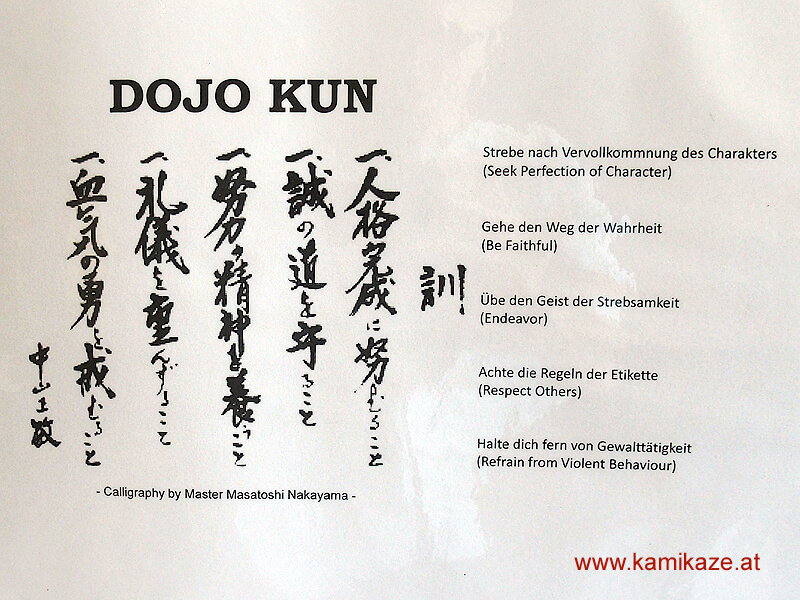 DOJO KUN
訓
一、人格完成に努むること
一、誠の道を守ること
一、努力の精神を養うこと
一、礼儀を重んずること
一、血気の勇を戒むること
中山正敏
- Calligraphy by Master Masatoshi Nakayama -
Strebe nach Vervollkommnung des Charakters
(Seek Perfection of Character)
Gehe den Weg der Wahrheit
(Be Faithful)
Übe den Geist der Strebsamkeit
(Endeavor)
Achte die Regeln der Etikette
(Respect Others)
Halte dich fern von Gewalttätigkeit
(Refrain from Violent Behaviour)
www.kamikaze.at